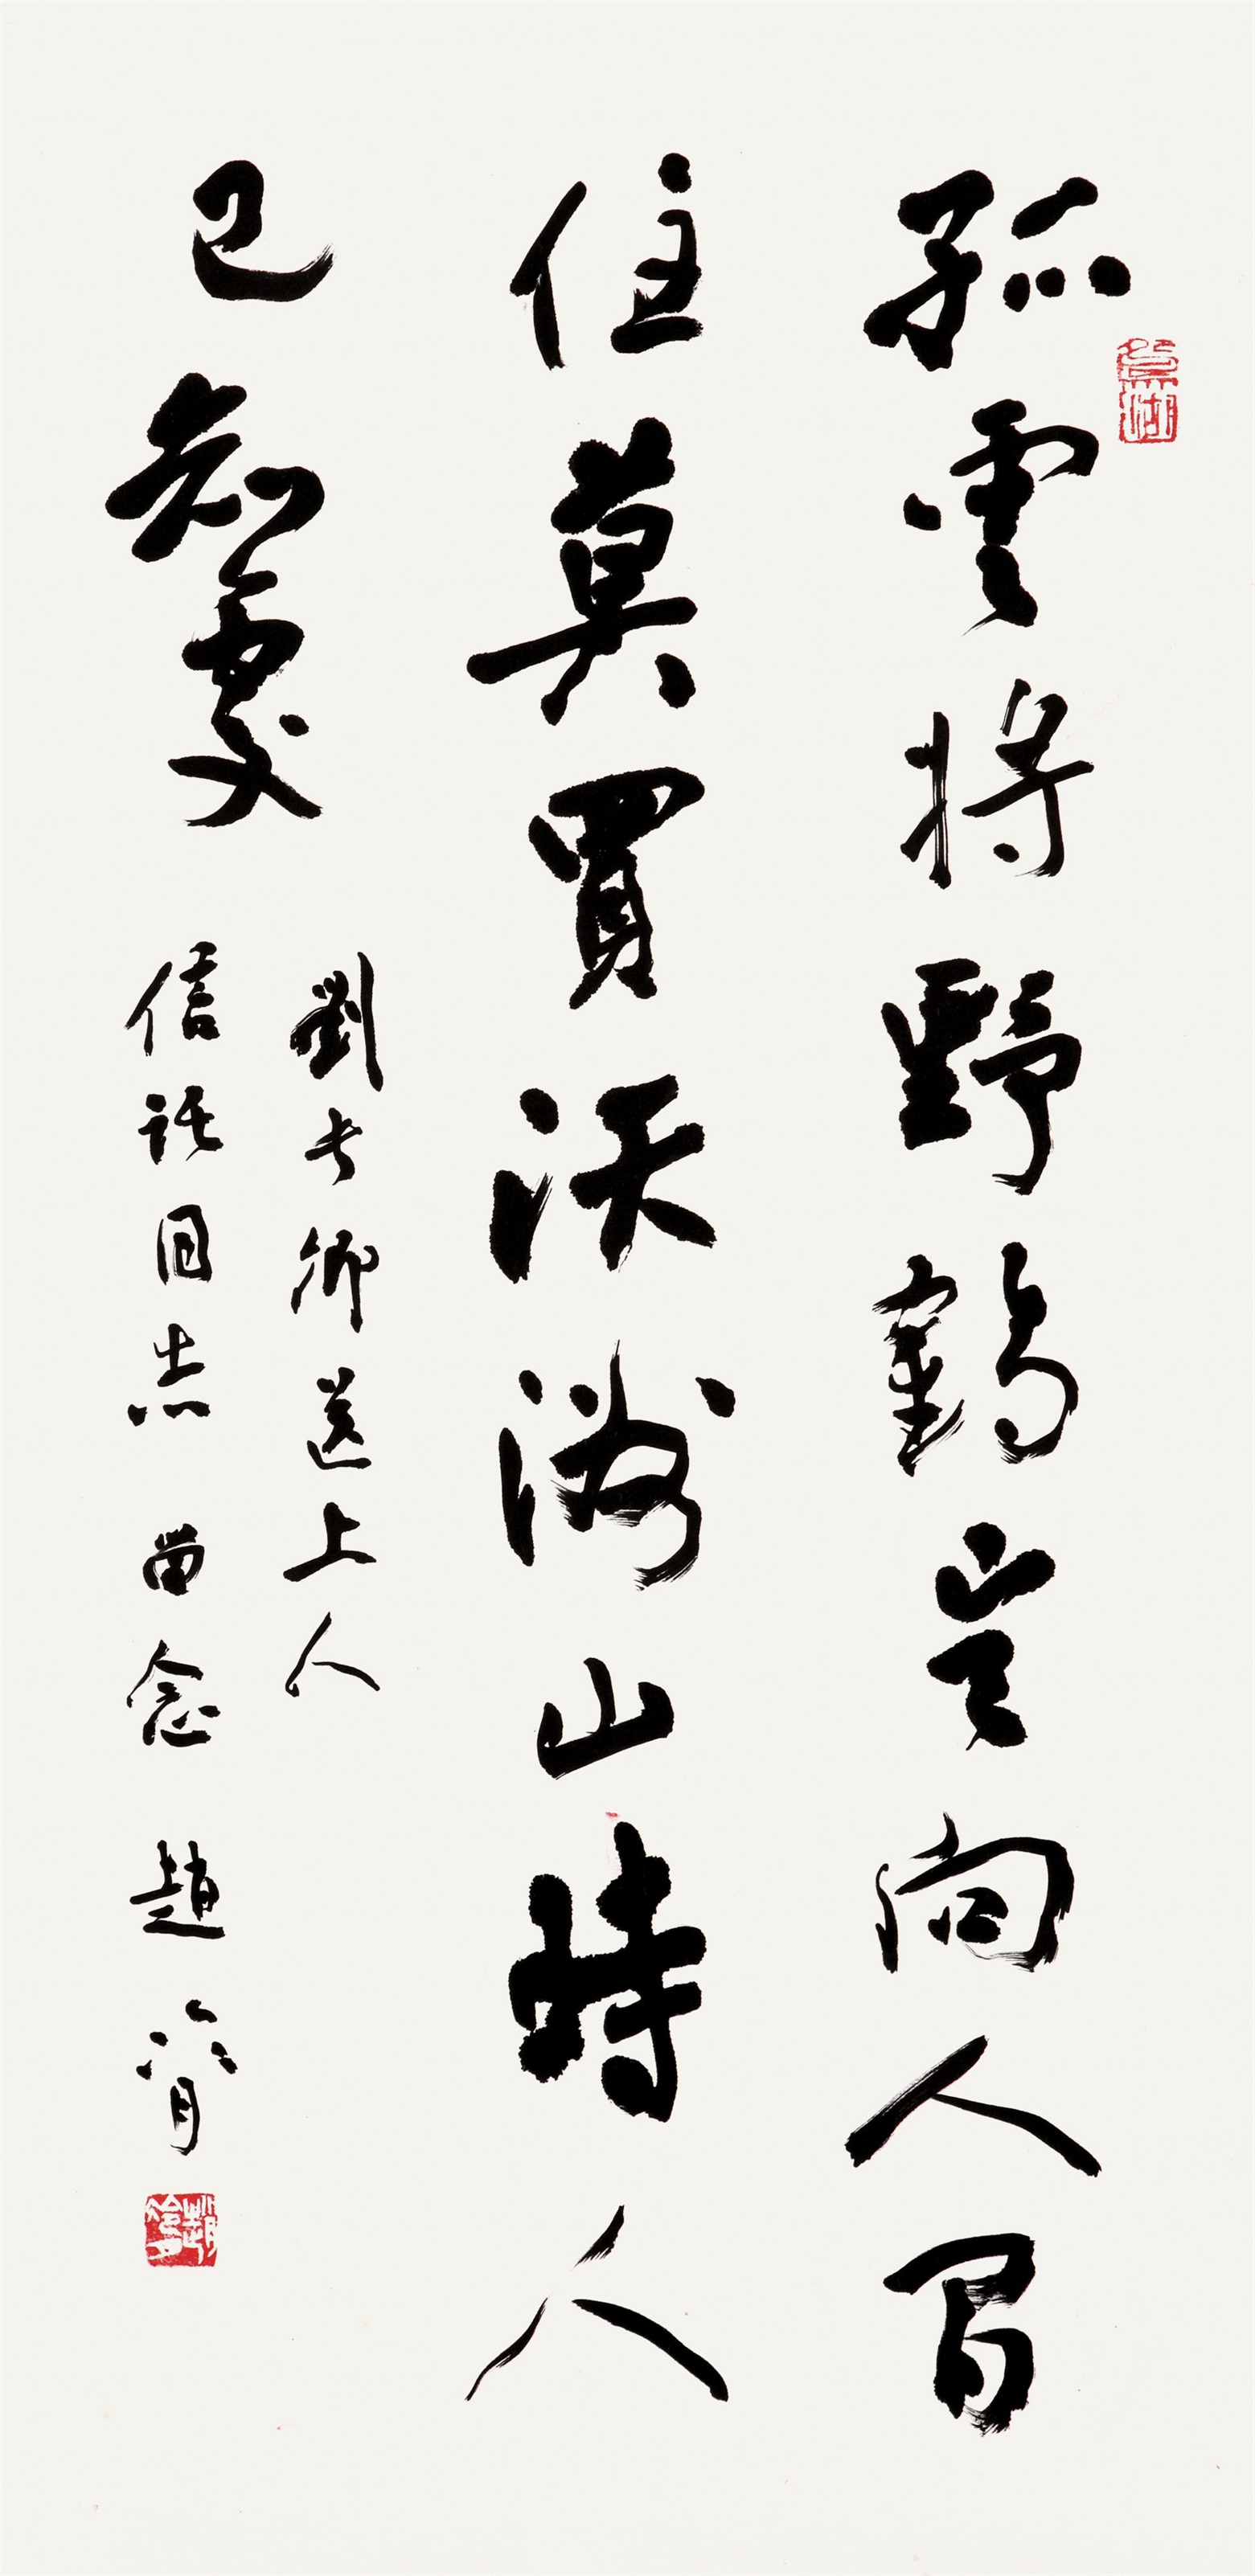 孤雲将野鶴豈向人間
住莫買沃洲山時人
已知處
劉長卿送上人
信同志 留念 趙冷月